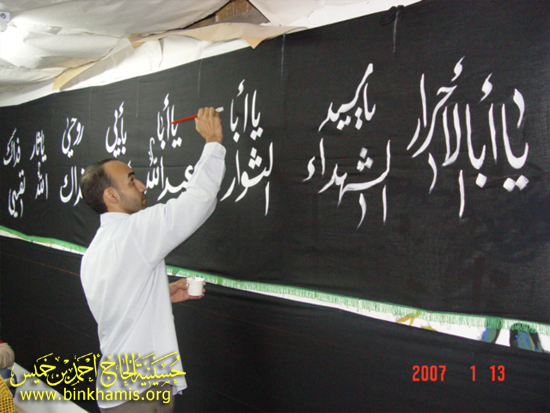 يا أبا الأحرار
يا سيد
الشهداء
يا أبا
الثوار
يا أبا
عبدالله
بأبي
روحي
فداك
يا ثار
الله
فداك
نفسي
حسينية الحاج أحمد بن خميس
www.binkhamis.org
2007 1 13